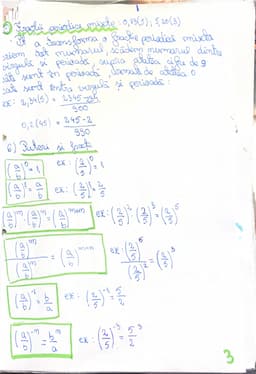 5) Fracții periodice mixte: 0,73(5); 5,20(3)
! A transforma o fracție periodică mixtă
scriem tot numărul, scădem numărul dintre
virgulă și perioadă, supra atâția cifre de 9
câte sunt în perioadă, urmate de atâtea 0
câte sunt între virgulă și perioadă:
ex: 2,34(5) = 2345-234/900
0,2(45) = 245-2/990
6) Puteri și fracții
(a/b)^0 = 1 ex: (2/5)^0 = 1
(a/b)^1 = a/b ex: (2/5)^1 = 2/5
(a/b)^m · (a/b)^n = (a/b)^m+n ex: (2/5)^2 · (2/5)^3 = (2/5)^5
(a/b)^m / (a/b)^n = (a/b)^m-n ex: (2/5)^5 / (2/5)^2 = (2/5)^3
(a/b)^-1 = b/a ex: (2/5)^-1 = 5/2
(a/b)^-n = b^n/a ex: (2/5)^-3 = 5^3/2
3